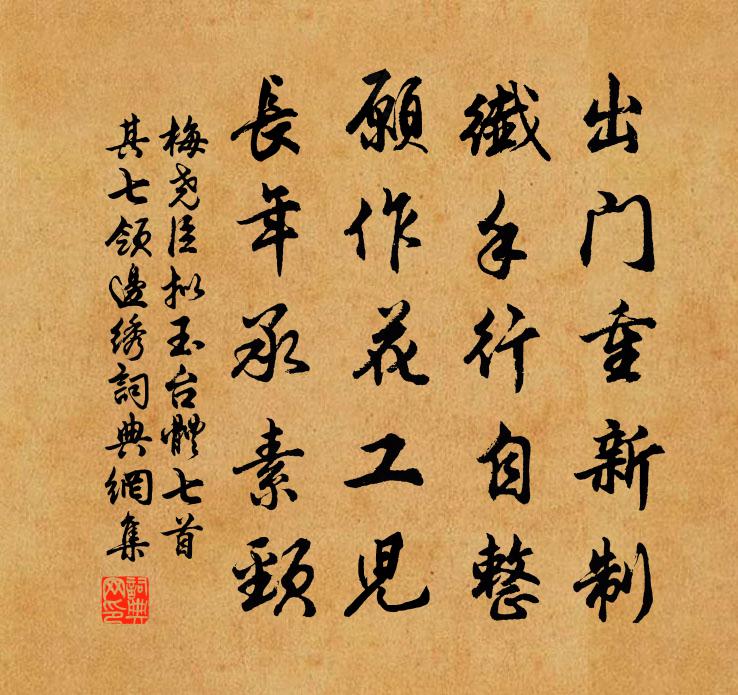 出门重新制
纤手行自整
愿作花工儿
長年承素頸
梅尧臣拟玉台體七首
其七领邊绣詞典網集
詞典
网印